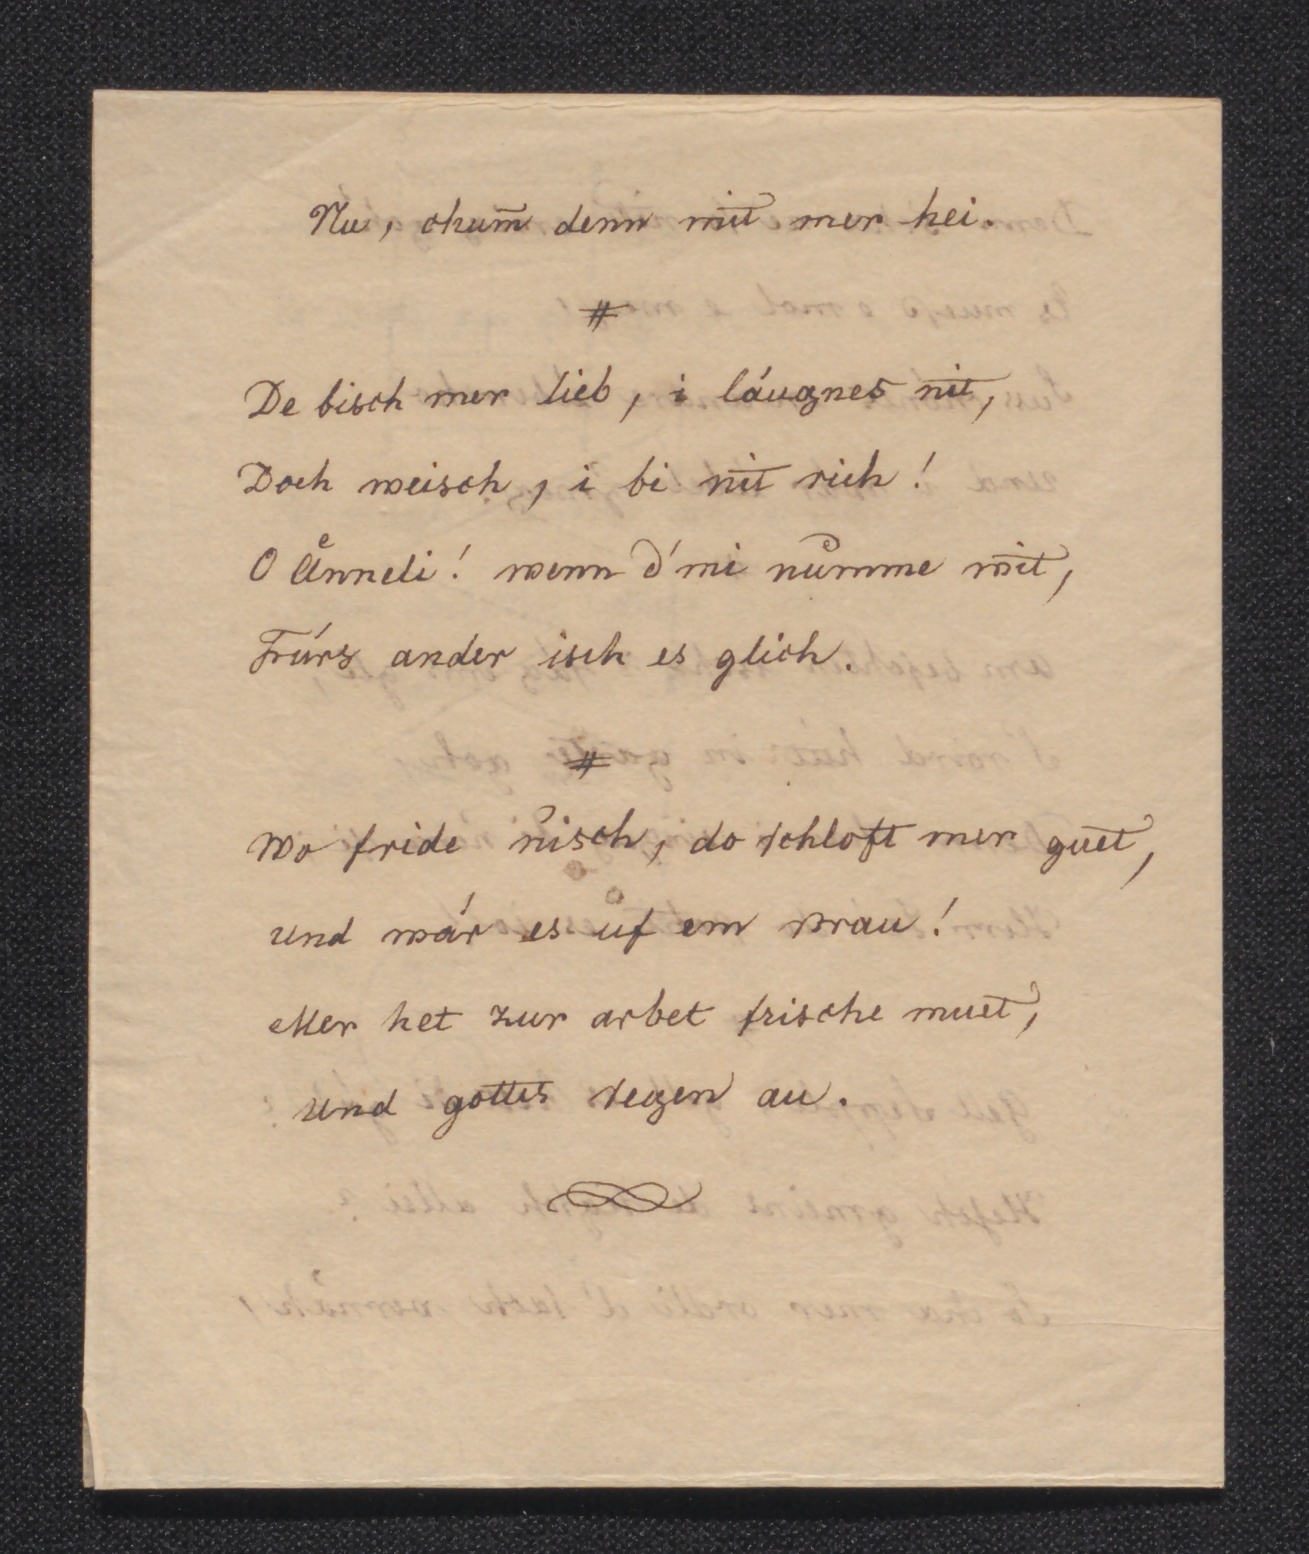 Nu, chum̄ denn mit mer hei.
#
De bisch mer lieb, i láugnes nit,
Doch weisch, i bi nit rich!
O Aͤnneli! wenn d'mi numme wit,
Fúrs ander isch es glich.
#
Wo fride n'isch, do schloft mer guet,
und wár es uf em Brau!
Mer het zur arbet frische muet,
und gottes segen au.